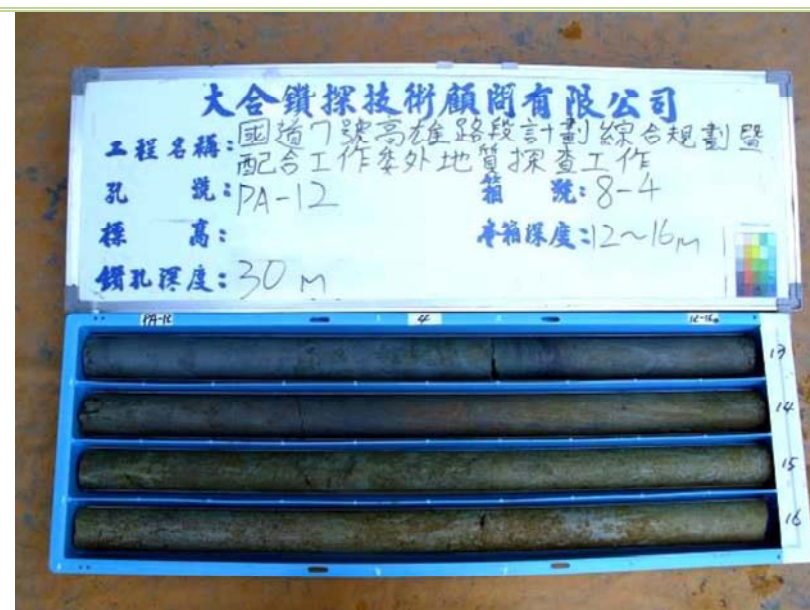 大合鑽探技術顧問有限公司
工程名稱:國道7號高雄路段計劃綜合規劃暨
配合工作委外地質探查工作
孔 號:PA-12 箱 號:8-4
標 高: 本箱深度:12~16m
鑽孔深度:30 m
PA-12 4 12-16m
13
14
15
16